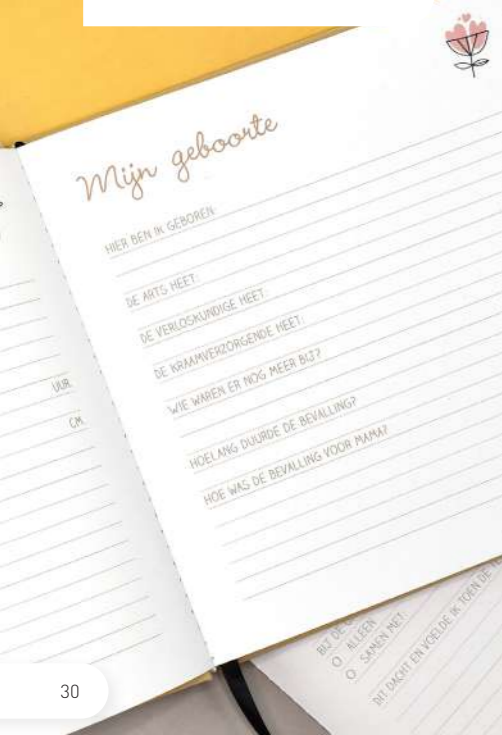 Mijn geboorte
HIER BEN IK GEBOREN:
DE ARTS HEET:
DE VERLOSKUNDIGE HEET:
DE KRAAMVERZORGENDE HEET:
WIE WAREN ER NOG MEER BIJ?
HOELANG DUURDE DE BEVALLING?
HOE WAS DE BEVALLING VOOR MAMA?
UUR.
CM.
BIJ DE
O ALLEEN
O SAMEN MET:
DIT DACHT EN VOELDE IK TOEN DE
30